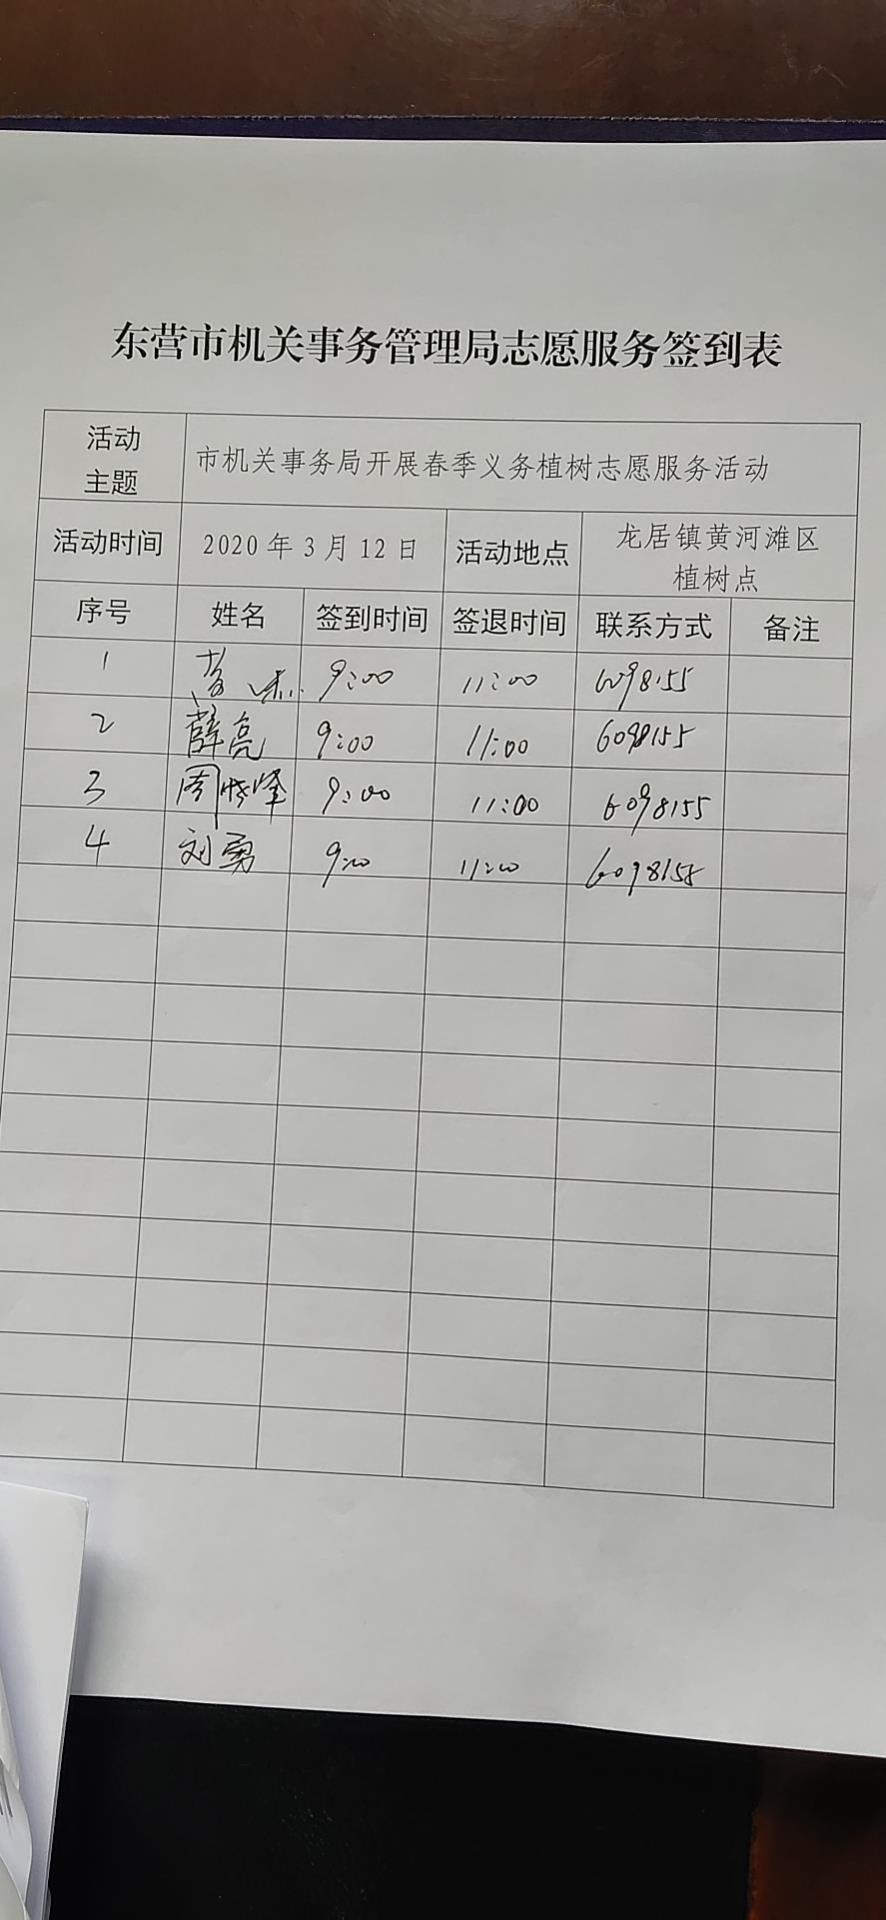 东营市机关事务管理局志愿服务签到表
活动主题 市机关事务局开展春季义务植树志愿服务活动
活动时间 2020年3月12日 活动地点 龙居镇黄河滩区植树点
序号 姓名 签到时间 签退时间 联系方式 备注
1 9:00 11:00 6098155
2 薛亮 9:00 11:00 6098155
3 周晓峰 9:00 11:00 6098155
4 刘勇 9:00 11:00 6098155